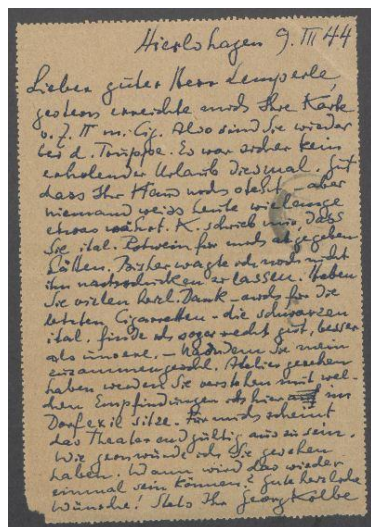 Hierlshagen 9. III 44
Lieber guter Herr Lemperle,
gestern erreichte mich Ihre Karte
v. 7. II m. Cig. Also sind Sie wieder
bei d. Truppe. Es war sicher kein
erholender Urlaub diesmal. Gut
dass Ihr Haus noch steht – aber
niemand weiss heute wie lange
etwas währt. K. schrieb mir, dass
Sie ital. Rotwein für mich abgegeben
hätten. Bisher wagte ich noch nicht
ihn nachschicken zu lassen. Haben
Sie vielen herzl. Dank – auch für die
letzten Cigaretten – die schwarzen
ital. finde ich sogar recht gut, besser
als unsere. – Nachdem Sie mein
zusammengeschl. Atelier gesehen
haben werden Sie verstehen mit wel-
chen Empfindungen ich hier im
Dorfexil sitze. Für mich scheint
das Theater endgültig aus zu sein.
Wie gern würde ich Sie gesehen
haben. Wann wird das wieder
einmal sein können? Gute herzliche
Wünsche! Stets Ihr Georg Kolbe